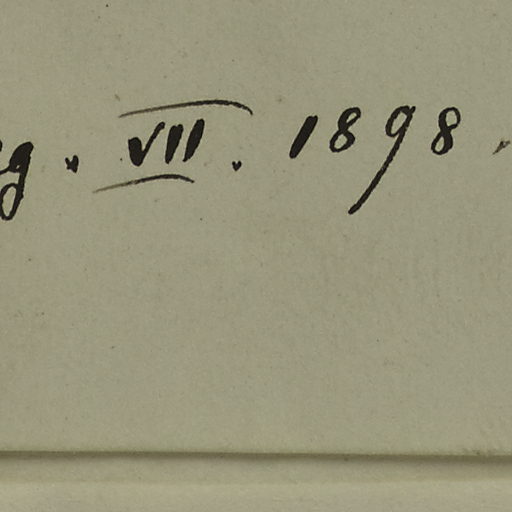 g. VII. 1898.